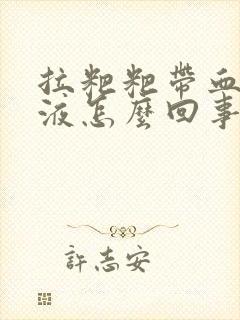 拉粑粑帶血
液怎麼回事
許志安